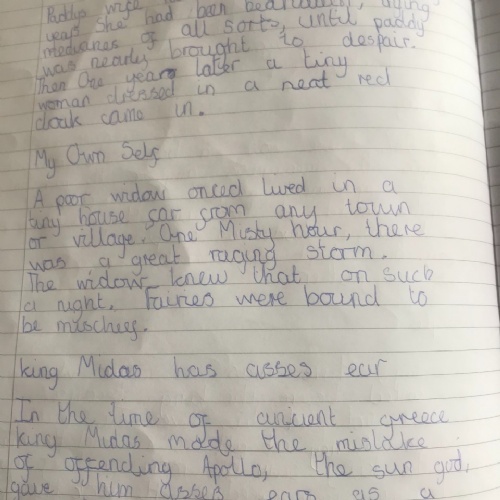 Paddys wife had been bedridden, trying
years she had been
medicines of all sorts, until paddy
was nearly brought to despair.
Then One years later a tiny
woman dressed in a neat red
cloak came in.
My Own Self
A poor widow onced lived in a
tiny house far from any town
or village. One Misty hour, there
was a great raging storm.
The widow knew that on such
a night, Fairies were bound to
be mischief.
king Midas has asses ear
In the time of ancient greece
king Midas made the mistake
of offending Apollo, the sun god,
gave him asses ears as a